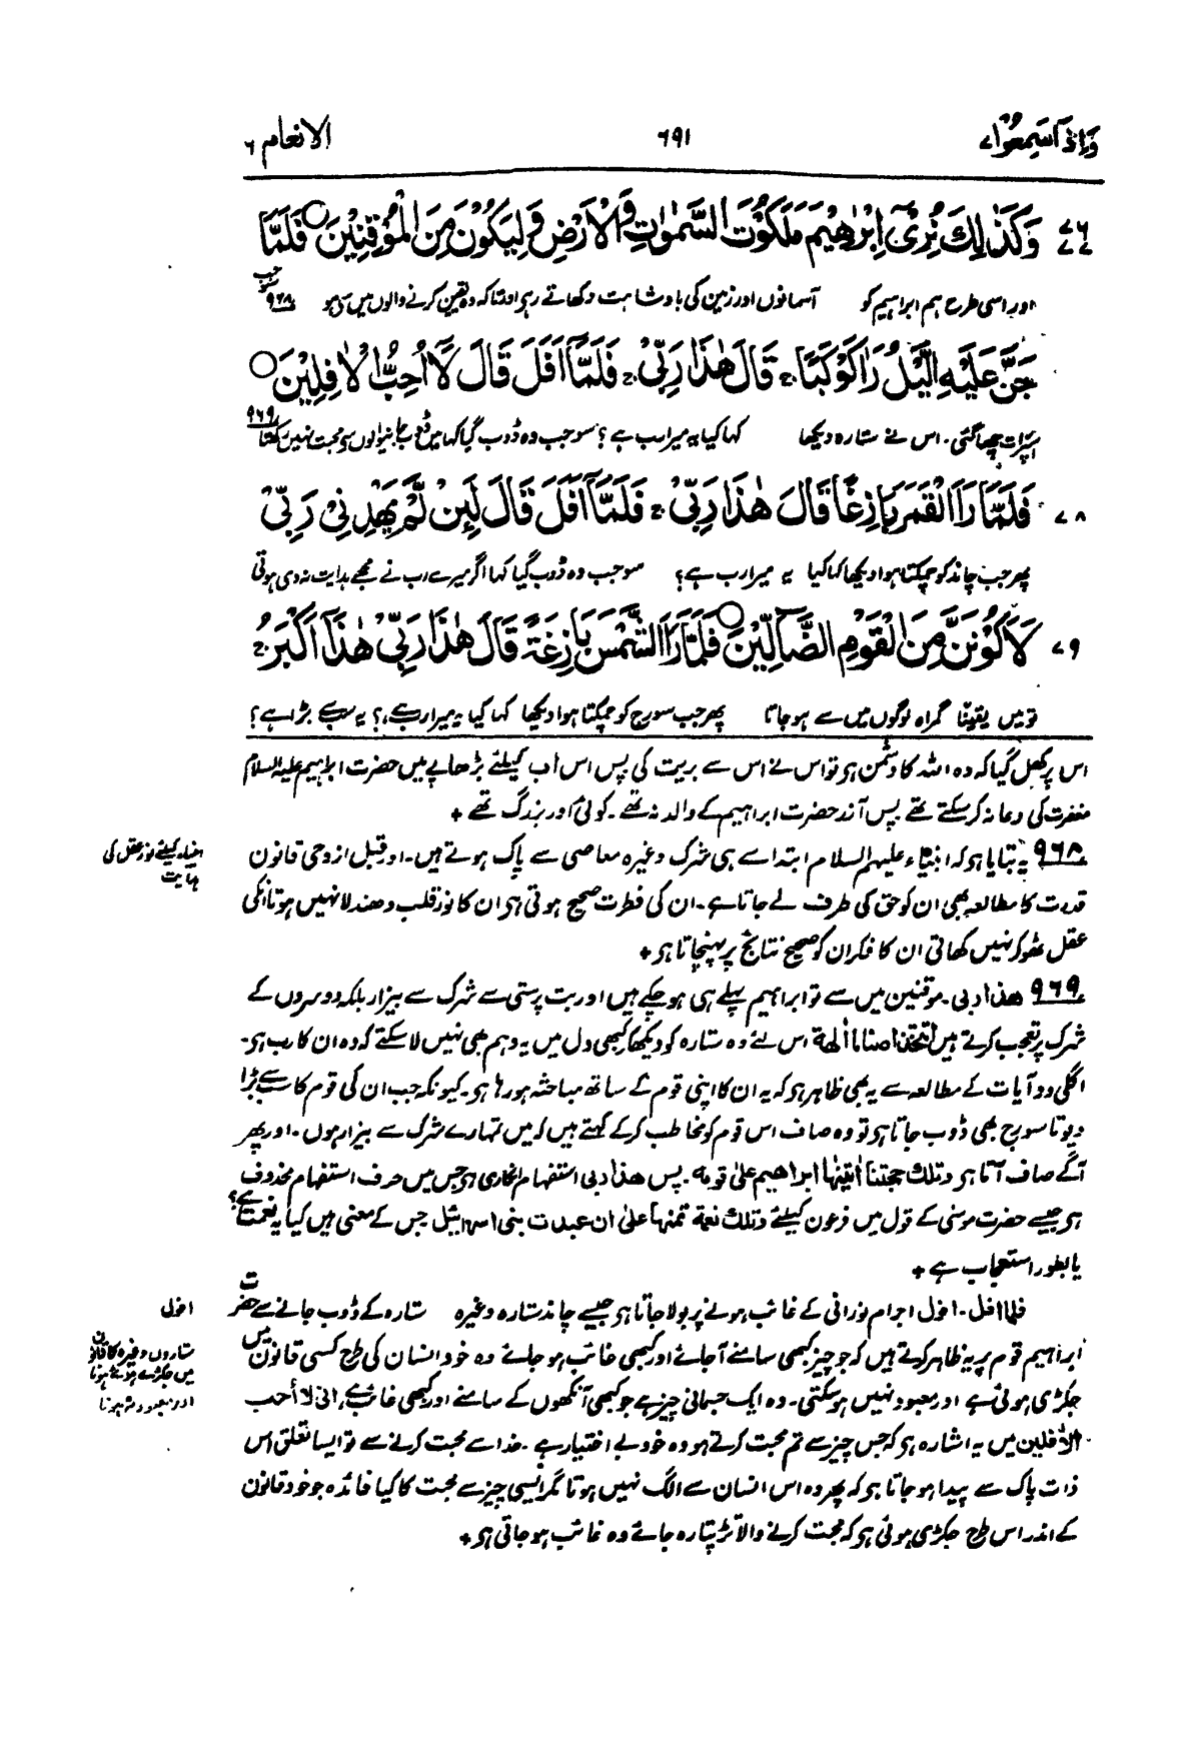 وَاِذَا سَمِعُوْا ۷
۶۹۱
الانعام ۶
۷۶ ۷۷ وَكَذٰلِكَ نُرِیْۤ اِبْرٰهِیْمَ مَلَكُوْتَ السَّمٰوٰتِ وَالْاَرْضِ وَلِیَكُوْنَ مِنَ الْمُوْقِنِیْنَ ○ فَلَمَّا
اور اسی طرح ہم ابراہیم کو آسمانوں اور زمین کی بادشاہت دکھاتے رہے اور تاکہ وہ یقین کرنے والوں میں سے ہو ۹۶۸ جب
جَنَّ عَلَیْهِ الَّیْلُ رَاٰ كَوْكَبًا ۚ قَالَ هٰذَا رَبِّیْ ۚ فَلَمَّاۤ اَفَلَ قَالَ لَاۤ اُحِبُّ الْاٰفِلِیْنَ ○
اس پر رات چھا گئی۔ اس نے ستارہ دیکھا کہا کیا یہ میرا رب ہے؟ سو جب وہ ڈوب گیا کہا میں ڈوب جانیوالوں سے محبت نہیں رکھتا ۹۶۹
۷۸ فَلَمَّا رَاَ الْقَمَرَ بَازِغًا قَالَ هٰذَا رَبِّیْ ۚ فَلَمَّاۤ اَفَلَ قَالَ لَىِٕنْ لَّمْ یَهْدِنِیْ رَبِّیْ
پھر جب چاند کو چمکتا ہوا دیکھا کہا کیا یہ میرا رب ہے؟ سو جب وہ ڈوب گیا کہا اگر میرے رب نے مجھے ہدایت نہ دی ہوتی
۷۹ لَاَكُوْنَنَّ مِنَ الْقَوْمِ الضَّآلِّیْنَ ○ فَلَمَّا رَاَ الشَّمْسَ بَازِغَةً قَالَ هٰذَا رَبِّیْ هٰذَاۤ اَكْبَرُ ۚ
تو میں یقینًا گمراہ لوگوں میں سے ہو جاتا پھر جب سورج کو چمکتا ہوا دیکھا کہا کیا یہ میرا رب ہے؟ یہ سب سے بڑا ہے؟
اس پر کھل گیا کہ وہ اللہ کا دشمن ہے تو اس نے اس سے بریت کی پس اس اب کیلئے بڑھاپے میں حضرت ابراہیم علیہ السلام
مغفرت کی دعا نہ کر سکتے تھے پس آذر حضرت ابراہیم کے والد نہ تھے۔ کوئی اور بزرگ تھے +
۹۶۸ یہ بتایا ہے کہ انبیاء علیہم السلام ابتدا سے ہی شرک وغیرہ معاصی سے پاک ہوتے ہیں۔ اور قبل از وحی قانون
انبیاء کیلئے نور عقل کی
ہدایت
قدرت کا مطالعہ بھی ان کو حق کی طرف لے جاتا ہے۔ ان کی فطرت صحیح ہوتی ہے ان کا نور قلب دھندلا نہیں ہوتا انکی
عقل ٹھوکر نہیں کھاتی ان کا فکر ان کو صحیح نتائج پر پہنچاتا ہے +
۹۶۹ ھذا ربی۔ موقنین میں سے تو ابراہیم پہلے ہی ہو چکے ہیں اور بت پرستی سے شرک سے بیزار بلکہ دوسروں کے
شرک پر تعجب کرتے ہیں اتتخذ اصناما اٰلھۃ اس لئے وہ ستارہ کو دیکھ کر کبھی دل میں یہ وہم بھی نہیں لا سکتے کہ وہ ان کا رب ہے۔
اگلی دو آیات کے مطالعہ سے یہ بھی ظاہر ہے کہ یہ ان کا اپنی قوم کے ساتھ مباحثہ ہو رہا ہے۔ کیونکہ جب ان کی قوم کا سب سے بڑا
دیوتا سورج بھی ڈوب جاتا ہے تو وہ صاف اس قوم کو مخاطب کرکے کہتے ہیں کہ میں تمہارے شرک سے بیزار ہوں۔ اور پھر
آگے صاف آتا ہے وتلك حجتنا اٰتینٰہا ابراھیم علیٰ قومہ۔ پس ھذا ربی استفہام انکاری ہے جس میں حرف استفہام محذوف
ہے جیسے حضرت موسیٰ کے قول میں فرعون کیلئے وتلك نعمۃ تمنہا علی ان عبدت بنی اسرائیل جس کے معنی ہیں کیا یہ نعمت ہے؟
یا بطور استعجاب ہے +
فلما افل۔ افول اجرام نورانی کے غائب ہونے پر بولا جاتا ہے جیسے چاند ستارہ وغیرہ ستارہ کے ڈوب جانے سے حضرت
افول
ابراہیم قوم پر یہ ظاہر کرتے ہیں کہ جو چیز کبھی سامنے آ جائے اور کبھی غائب ہو جائے وہ خود انسان کی طرح کسی قانون میں
ستاروں وغیرہ کا قانون
میں جکڑے ہوئے ہونا
جکڑی ہوئی ہے اور معبود نہیں ہو سکتی۔ وہ ایک جسمانی چیز ہے جو کبھی آنکھوں کے سامنے اور کبھی غائب ہے، انی لا أحب
اور معبود نہ ہونا
الاٰفلین میں یہ اشارہ ہے کہ جس چیز سے تم محبت کرتے ہو وہ خود بے اختیار ہے۔ خدا سے محبت کرنے سے تو ایسا تعلق اس
ذات پاک سے پیدا ہو جاتا ہے کہ پھر وہ اس انسان سے الگ نہیں ہوتا مگر ایسی چیز سے محبت کا کیا فائدہ جو خود قانون
کے اندر اس طرح جکڑی ہوئی ہے کہ محبت کرنے والا تڑپتا رہ جائے وہ غائب ہو جاتی ہے +